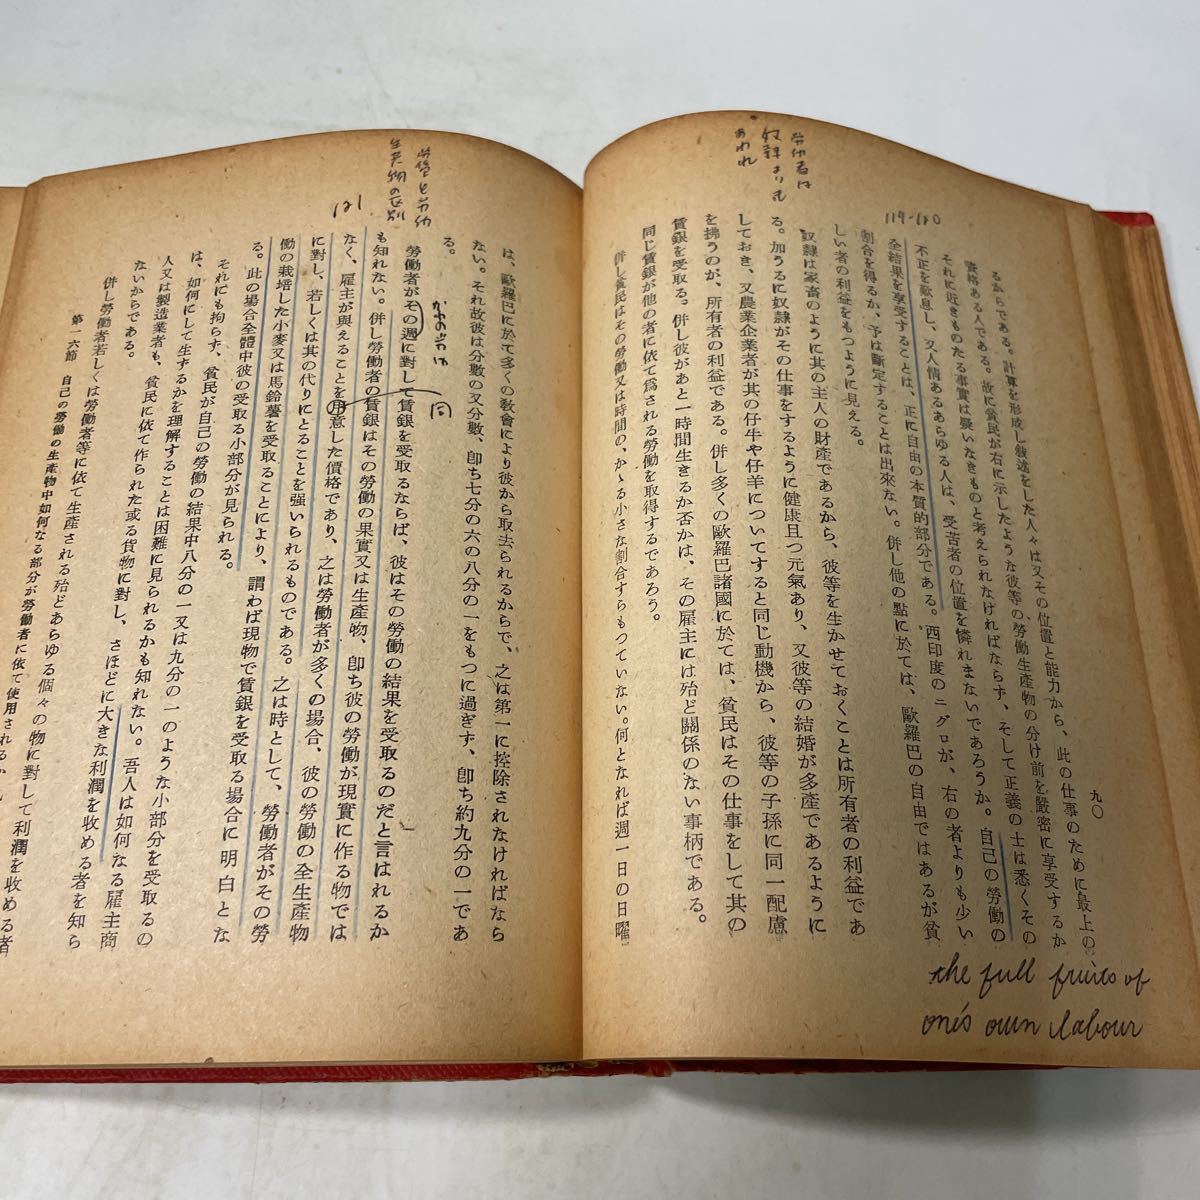 九〇
るからである。計算を形成し叙述をした人々は又その位置と能力から、此の仕事のために最上の
資格ある人である。故に貧民が右に示したような彼等の勞働生産物の分け前を嚴密に享受するか
それに近きものたる事實は疑いなきものと考えられなければならず、そして正義の士は悉くその
不正を歎息し、又人情あるあらゆる人は、受苦者の位置を憐れまないであろうか。自己の勞働の
全結果を享受することは、正に自由の本質的部分である。西印度のニグロが、右の者よりも少い
割合を得るか、予は斷定することは出來ない。併し他の點に於ては、歐羅巴の自由ではあるが貧
しい者の利益をもつように見える。
奴隷は家畜のように其の主人の財產であるから、彼等を生かせておくことは所有者の利益であ
る。加うるに奴隷がその仕事をするように健康且つ元氣あり、又彼等の結婚が多產であるように
しておき、又農業企業者が其の仔牛や仔羊についてすると同じ動機から、彼等の子孫に同一配慮
を拂うのが、所有者の利益である。併し多くの歐羅巴諸國に於ては、貧民はその仕事をして其の
賃銀を受取る。併し彼があと一時間生きるか否かは、その雇主には殆ど關係のない事柄である。
同じ賃銀が他の者に依て爲される勞働を取得するであろう。
併し貧民はその勞働又は時間の、かゝる小さな割合すらもつていない。何となれば週一日の日曜
119-120
勞働者は
奴隷よりも
あわれ
the full fruits of
one's own labour
は、歐羅巴に於て多くの敎會により彼から取去られるからで、之は第一に控除されなければなら
ない。それ故彼は分數の又分數、卽ち七分の六の八分の一をもつに過ぎず、卽ち約九分の一であ
る。
勞働者がその週に對して賃銀を受取るならば、彼はその勞働の結果を受取るのだと言はれるか
も知れない。併し勞働者の賃銀はその勞働の果實又は生產物、卽ち彼の勞働が現實に作る物では
なく、雇主が與えることを用意した價格であり、之は勞働者が多くの場合、彼の勞働の全生產物
に對し、若しくは其の代りにとることを强いられるものである。之は時として、勞働者がその勞
働の栽培した小麥又は馬鈴薯を受取ることにより、謂わば現物で賃銀を受取る場合に明白とな
る。此の場合全體中彼の受取る小部分が見られる。
それにも拘らず、貧民が自己の勞働の結果中八分の一又は九分の一のような小部分を受取るの
は、如何にして生ずるかを理解することは困難に見られるかも知れない。吾人は如何なる雇主商
人又は製造業者も、貧民に依て作られた或る貨物に對し、さほどに大きな利潤を收める者を知ら
ないからである。
併し勞働者若しくは勞働者等に依て生產される殆どあらゆる個々の物に對して利潤を收める者
第一六節 自己の勞働の生產物中如何なる部分が勞働者に依て使用されるか
勞賃と勞働
生產物の區別
121
同